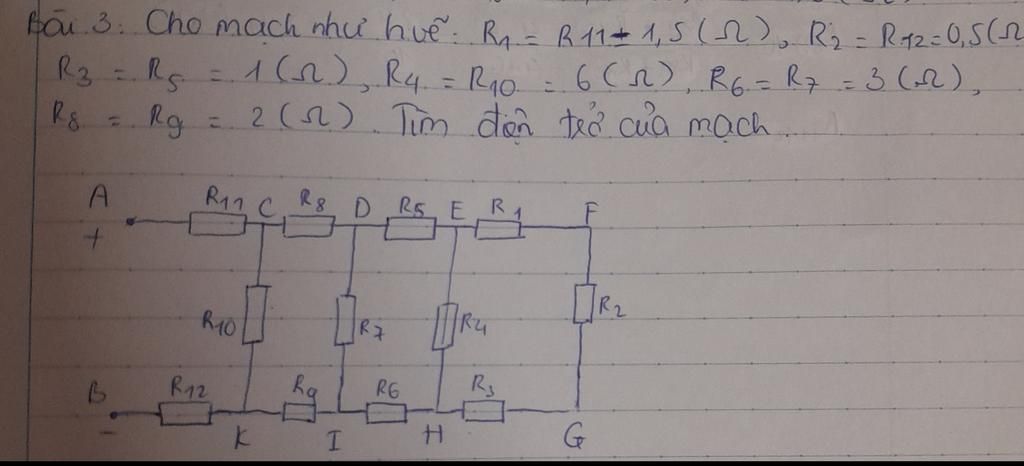 Bài 3: Cho mạch như huẽ: R1 = R11 = 1,5(Ω), R2 = R12=0,5(Ω
R3 = R5 = 1(Ω), R4 = R10 = 6(Ω), R6 = R7 = 3(Ω),
R8 = R9 = 2(Ω). Tìm điện trở của mạch.
A R11 C R8 D R5 E R1 F
+
R10 R7 R4 R2
B R12 R9 R6 R3
-
K I H G